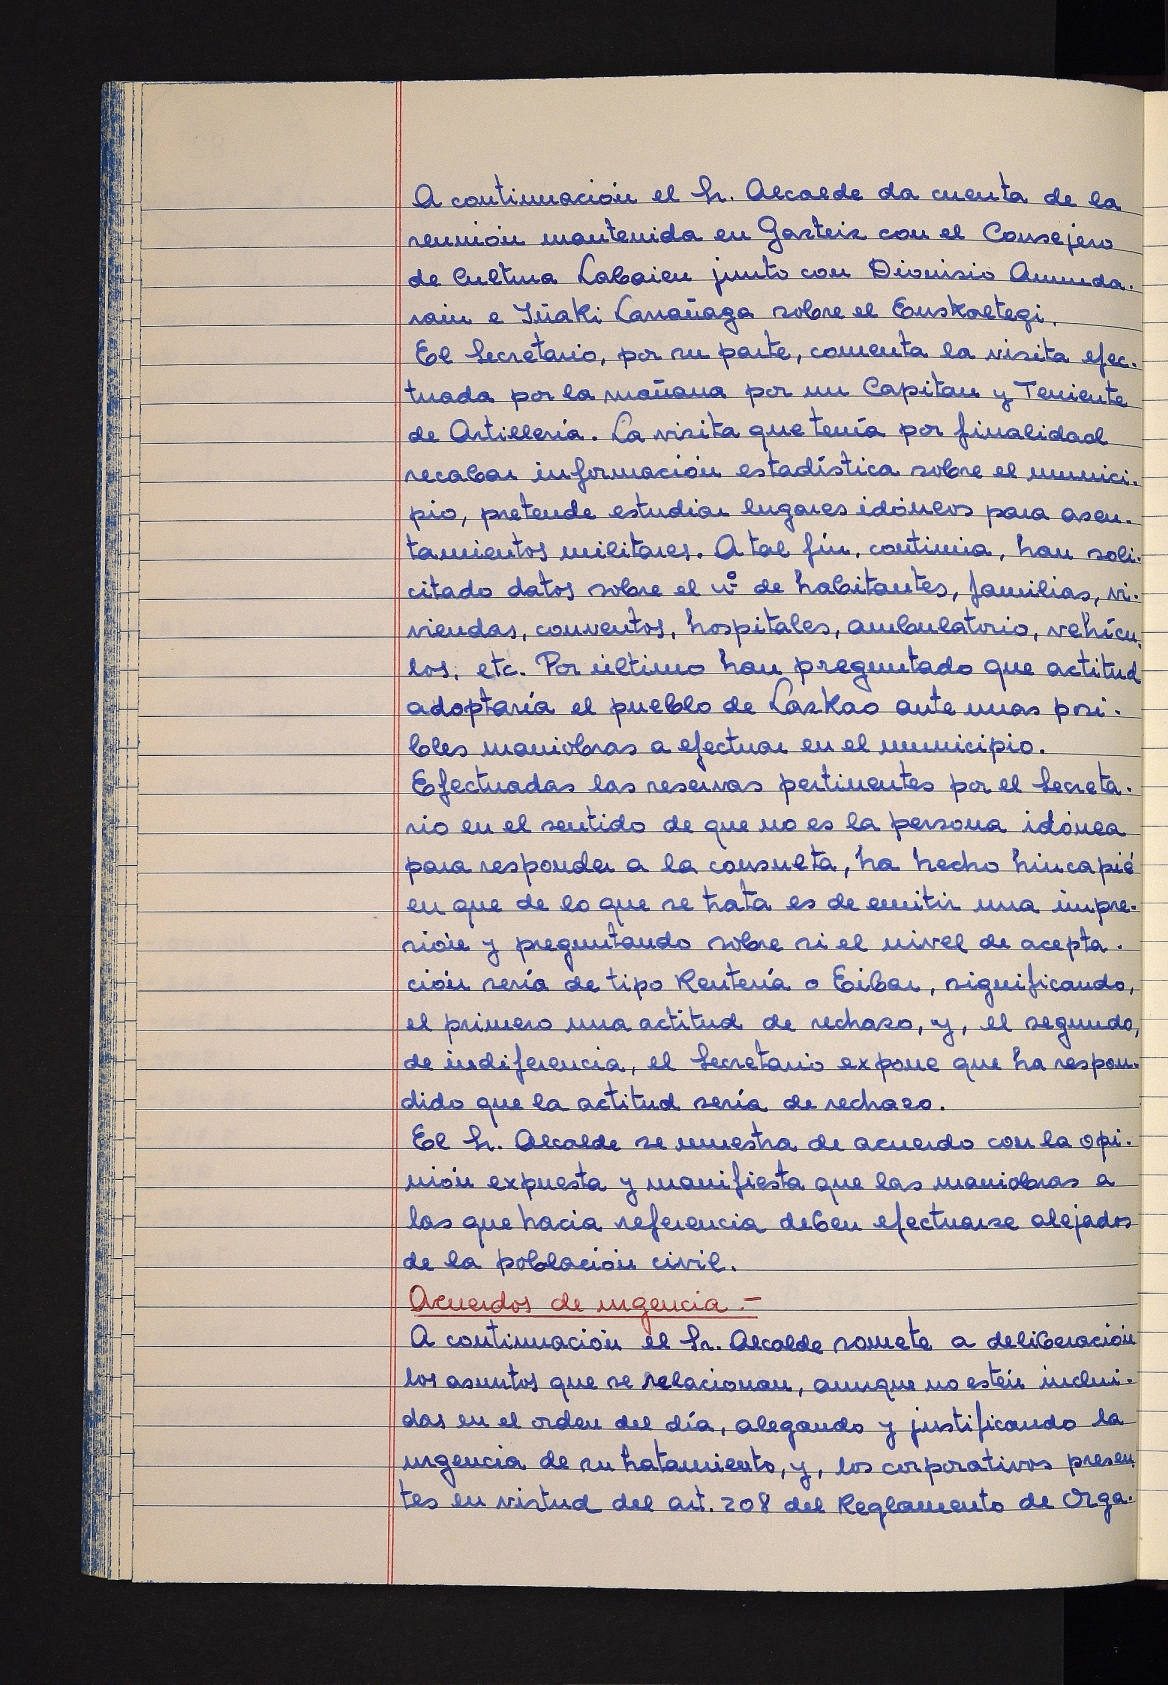 A continuación el Sr. Alcalde da cuenta de la
reunión mantenida en Gasteiz con el Consejero
de Cultura Labaien junto con Dionisio Amunda-
rain e Iñaki Larrañaga sobre el Euskaltegi.
El Secretario, por su parte, comenta la visita efec-
tuada por la mañana por un Capitan y Teniente
de Artillería. La visita que tenía por finalidad
recabar información estadística sobre el munici-
pio, pretende estudiar lugares idóneos para asen-
tamientos militares. A tal fín, continúa, han soli-
citado datos sobre el nº de habitantes, familias, vi-
viendas, conventos, hospitales, ambulatorio, vehícu-
los, etc. Por último han preguntado que actitud
adoptaría el pueblo de Lazkao ante unas posi-
bles maniobras a efectuar en el municipio.
Efectuadas las reservas pertinentes por el Secreta-
rio en el sentido de que no es la persona idónea
para responder a la consulta, ha hecho hincapié
en que de lo que se trata es de emitir una impre-
sión y preguntando sobre si el nivel de acepta-
ción sería de tipo Rentería o Eibar, significando,
el primero una actitud de rechazo, y, el segundo,
de indiferencia, el Secretario expone que ha respon-
dido que la actitud sería de rechazo.
El Sr. Alcalde se muestra de acuerdo con la opi-
nión expuesta y manifiesta que las maniobras a
las que hacia referencia deben efectuarse alejados
de la población civil.
Acuerdos de urgencia.-
A continuación el Sr. Alcalde somete a deliberación
los asuntos que se relacionan, aunque no estén inclui-
das en el orden del día, alegando y justificando la
urgencia de su tratamiento, y, los corporativos presen-
tes en virtud del art. 208 del Reglamento de Orga-